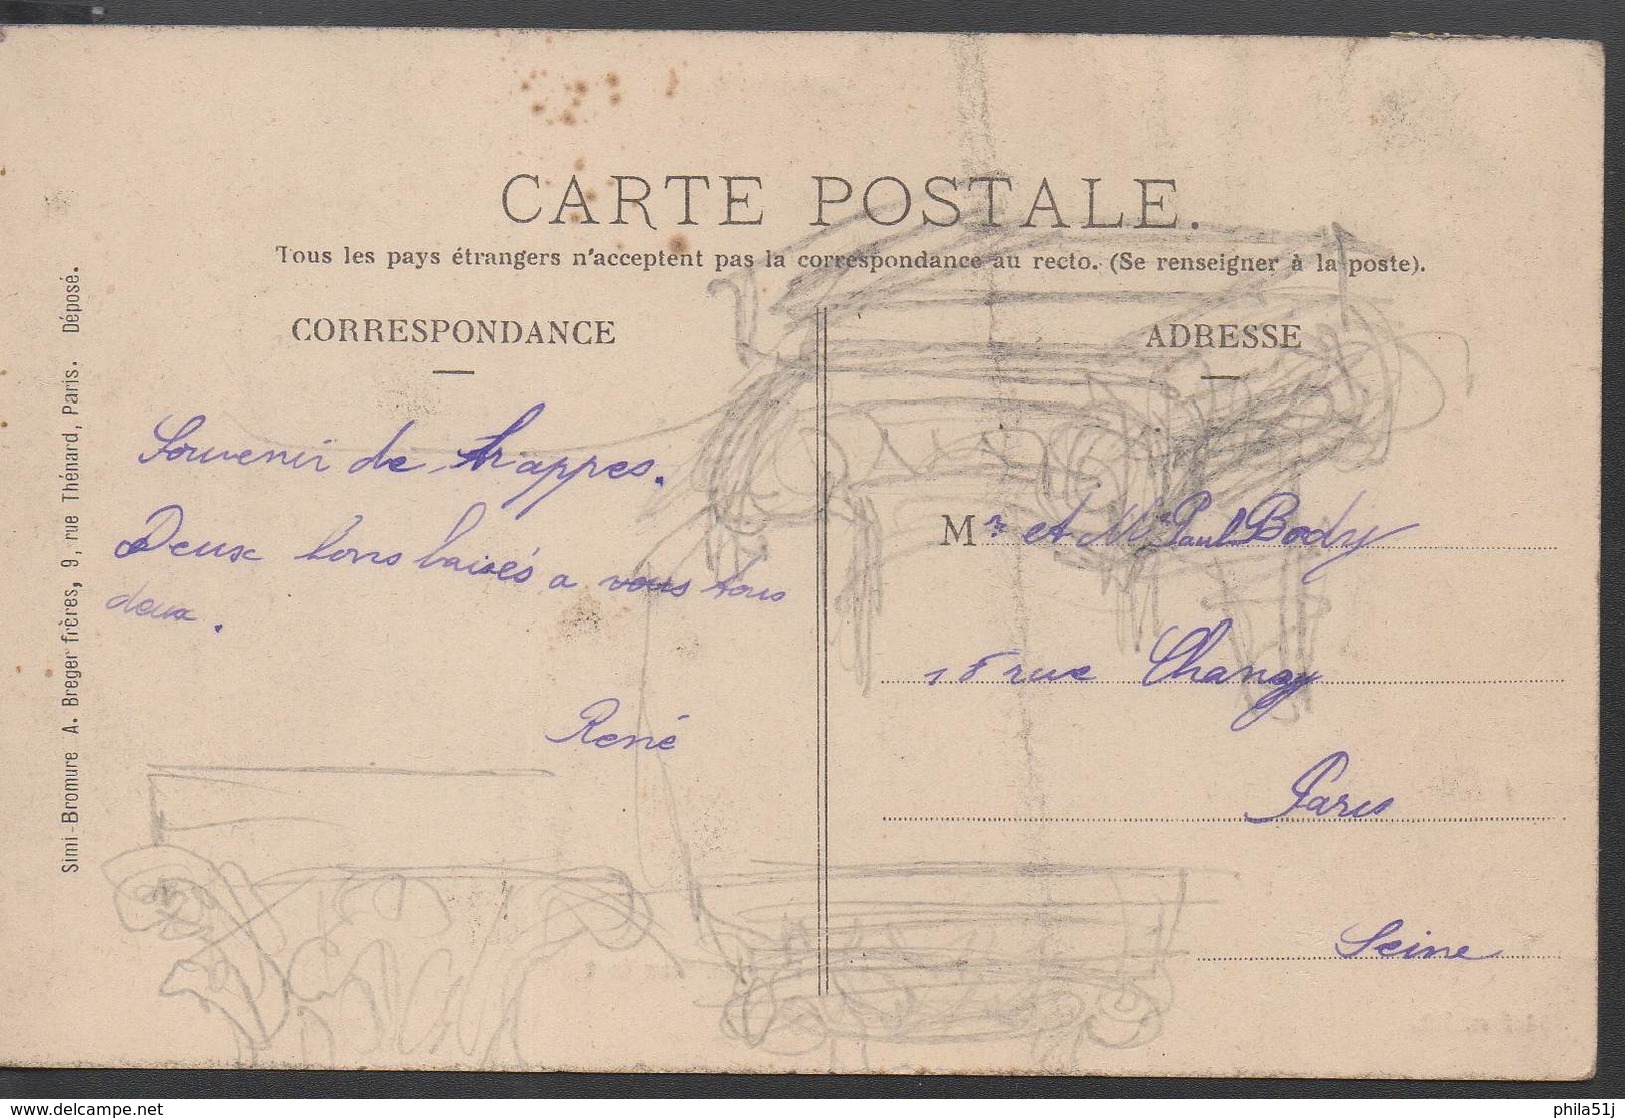 CARTE POSTALE.
Tous les pays étrangers n'acceptent pas la correspondance au recto. (Se renseigner à la poste).
CORRESPONDANCE
Souvenir de Trappes.
Deux bons baisés a vous tous
deux.
René
ADRESSE
Mr et Me Paul Body
rue Changy
Paris
Seine
Simi-Bromure A. Breger frères, 9, rue Thénard, Paris. Déposé.
www.delcampe.net
phila51j